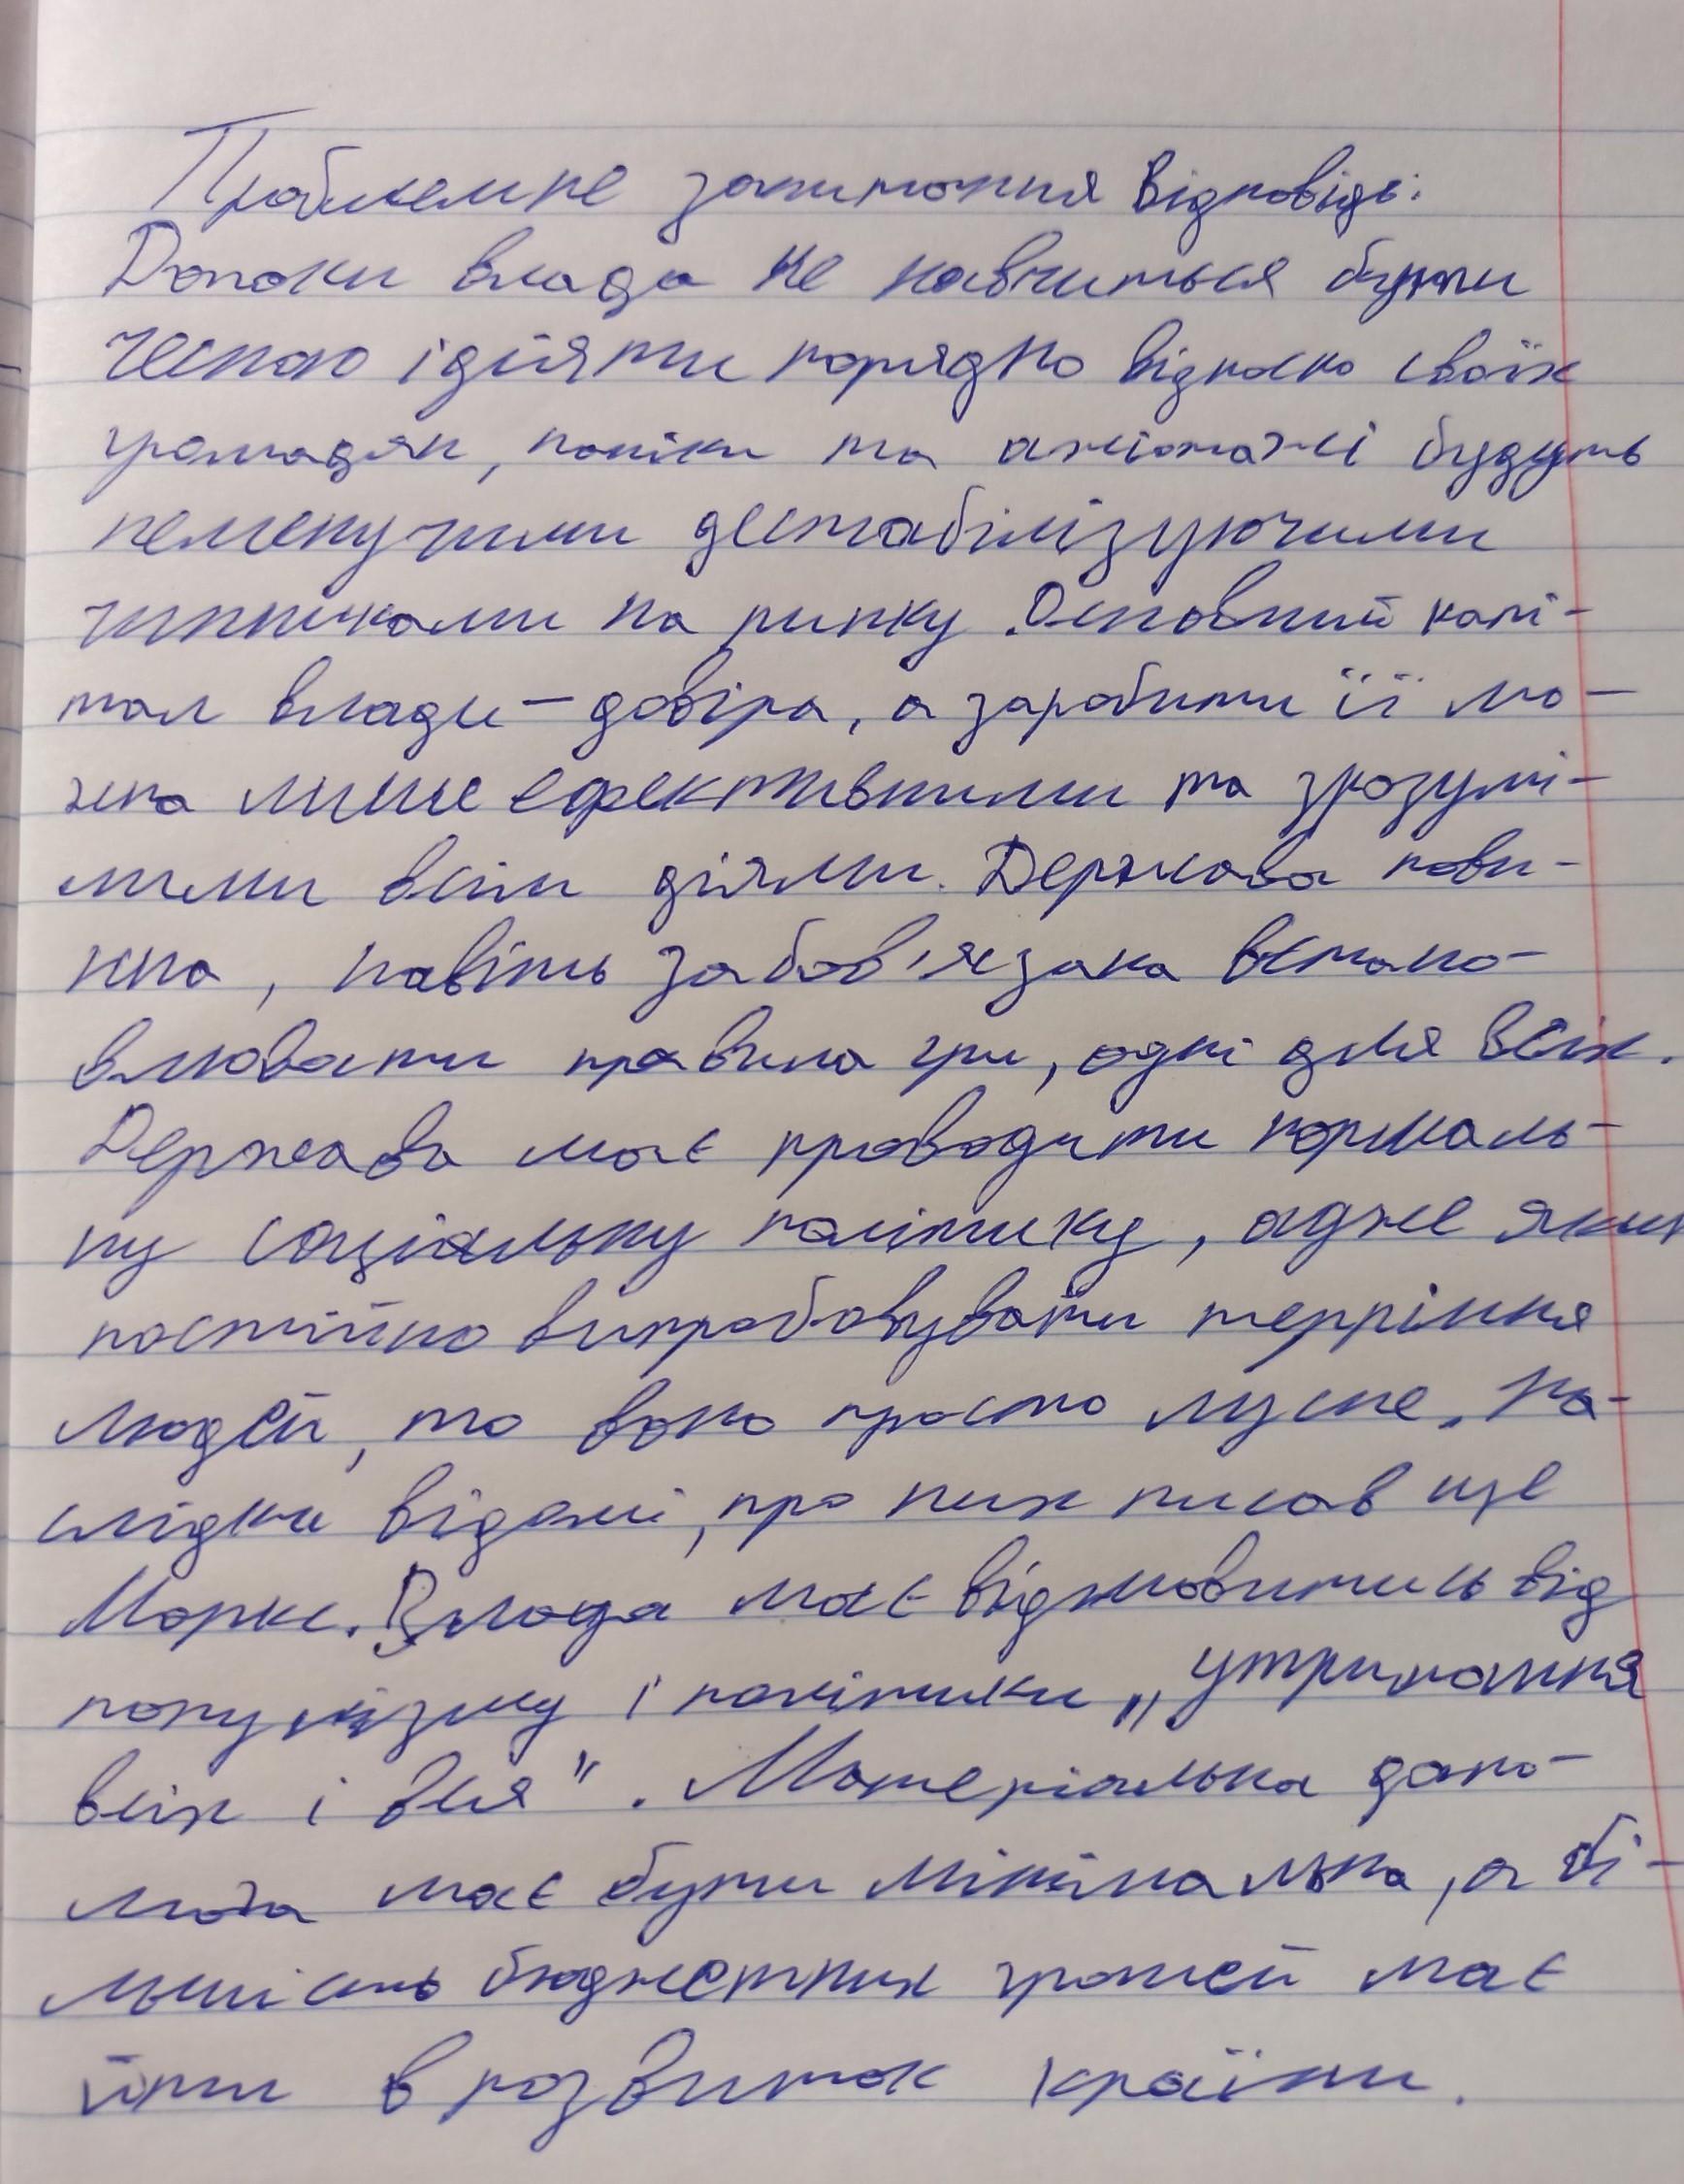 Проблемне запитання Відповідь:
Допоки влада не навчиться бути
чесною і діяти порядно відносно своїх
громадян, паніки та ажіотажі будуть
неминучими дестабілізуючими
чинниками на ринку. Основний капі-
тал влади – довіра, а заробити її мо-
жна лише ефективними та зрозумі-
лими всім діями. Держава пови-
нна, навіть забов'язана встано-
влювати правила гри, одні для всіх.
Держава має проводити нормаль-
ну соціальну політику, адже якщо
постійно випробовувати терпіння
людей, то воно просто лусне. На-
слідки відомі, про них писав ще
Маркс. Влада має відмовитись від
популізму і політики „утримання
всіх і вся". Матеріальна допо-
мога має бути мінімальна, а бі-
льшість бюджетних грошей має
йти в розвиток країни.